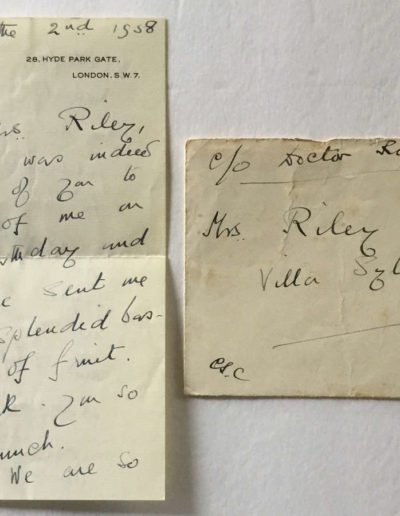 the 2nd 1958
28, HYDE PARK GATE,
LONDON, S.W.7.
Riley,
was indeed
of you to
of me on
and
sent me
splendid bas-
of fruit.
you so
much.
We are so
c/o Doctor
Mrs. Riley
Villa
CS.C